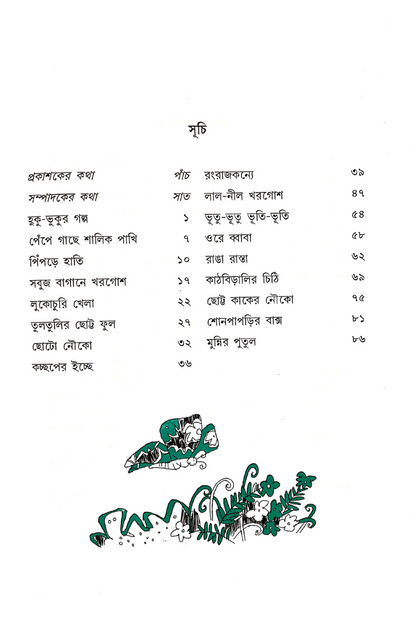 সূচি
প্রকাশকের কথা পাঁচ
সম্পাদকের কথা সাত
হুকু-ভুকুর গল্প ১
পেঁপে গাছে শালিক পাখি ৭
পিঁপড়ে হাতি ১০
সবুজ বাগানে খরগোশ ১৭
লুকোচুরি খেলা ২২
তুলতুলির ছোট্ট ফুল ২৭
ছোটো নৌকো ৩২
কচ্ছপের ইচ্ছে ৩৬
রংরাজকন্যে ৩৯
লাল-নীল খরগোশ ৪৭
ভূতু-ভূতু ভূতি-ভূতি ৫৪
ওরে ব্বাবা ৫৮
রাঙা রাস্তা ৬২
কাঠবিড়ালির চিঠি ৬৯
ছোট্ট কাকের নৌকো ৭৫
শোনপাপড়ির বাক্স ৮১
মুন্নির পুতুল ৮৬